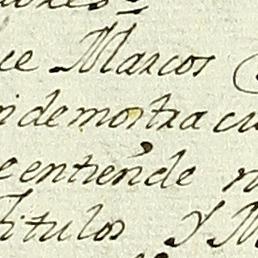 ce Marcos
demostra cu
entiende
Titulos Y M